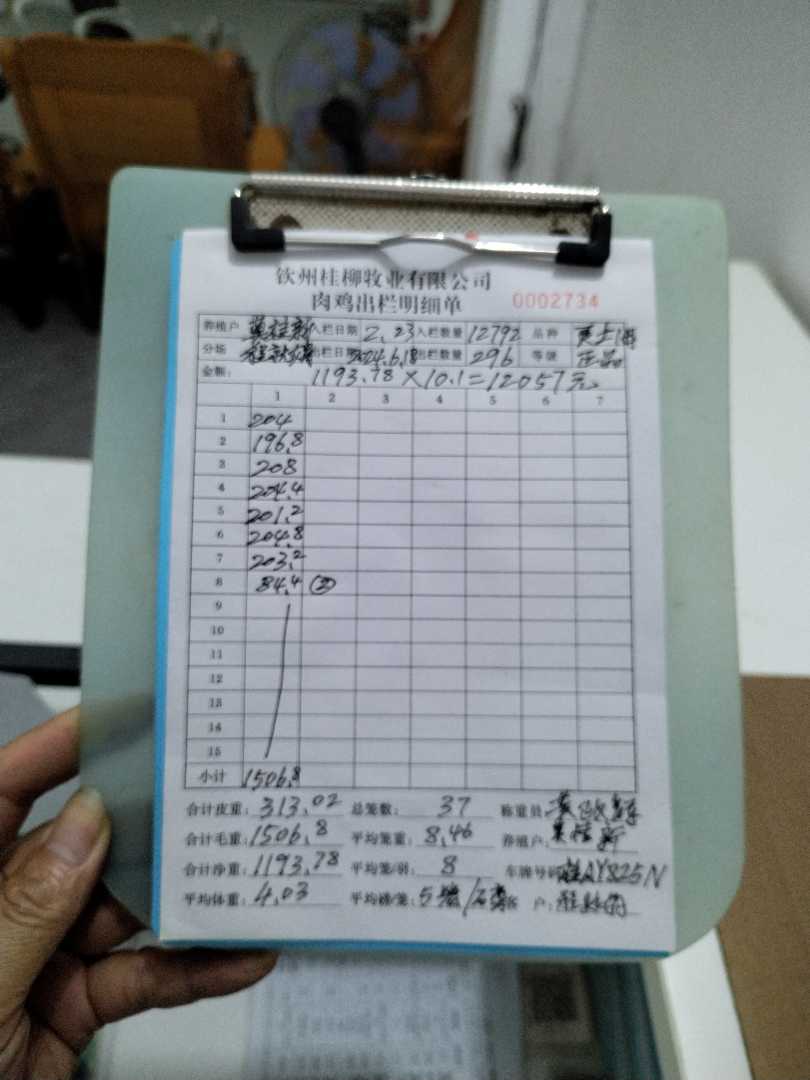 钦州桂柳牧业有限公司
肉鸡出栏明细单 0002734
养殖户 入栏日期 2.23 入栏数量 12792 品种
分场 出栏日期 2024.6.18 出栏数量 296 等级 正品
金额: 1193.78×10.1=12057元
1 2 3 4 5 6 7
1 204
2 196.8
3 208
4 204.4
5 201.2
6 204.8
7 203.2
8 84.4 ②
9
10
11
12
13
14
15
小计 1506.8
合计皮重: 313.02 总笼数: 37 称重员:
合计毛重: 1506.8 平均笼重: 8.46 养殖户:
合计净重: 1193.78 平均笼/羽: 8 车牌号码: 桂AY825N
平均体重: 4.03 平均磅/笼: 5笼/ 客户: